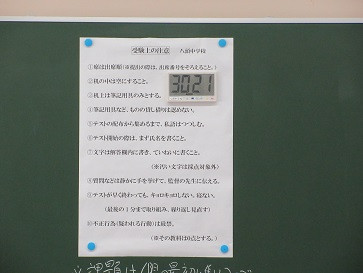 受験上の注意　八頭中学校
①席は出席順(※提出の際は、出席番号をそろえること。)
②机の中は空にすること。
30:21
③机上は筆記用具のみとする。
④筆記用具など、ものの貸し借りは認めない。
⑤テストの配布から集めるまで、私語はつつしむ。
⑥テスト開始の際は、まず氏名を書くこと。
⑦文字は解答欄内に書き、ていねいに書くこと。
(※汚い文字は採点対象外)
⑧質問などは静かに手を挙げて、監督の先生に伝える。
⑨テストが早く終わっても、キョロキョロしない、寝ない。
(最後の1分まで取り組み、繰り返し見直す)
⑩不正行為(疑われる行動)は厳禁。
(※その教科は0点とする。)